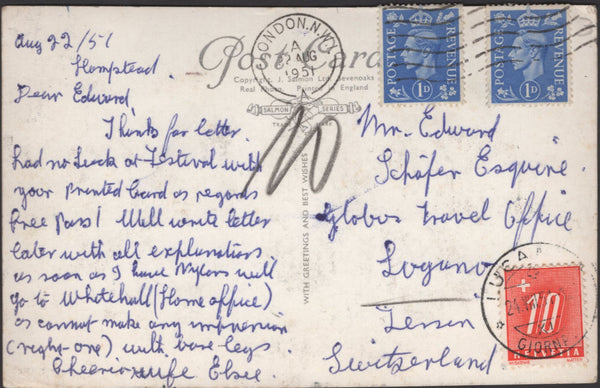 Aug 22/51
Hampstead.
Dear Edward,
Thanks for letter.
had no luck at Festival with
your printed Card as regards
free pass! Will write letter
later with all explanations
as soon as I have Nylons will
go to Whitehall (Home office)
as cannot make any impression
(right-one) with bare legs.
Cheerio Elsie
Post Card
Copyright. J. Salmon Ltd., Sevenoaks
Real Photo. Printed in England
SALMON SERIES
TRADE MARK
WITH GREETINGS AND BEST WISHES
LONDON. N.W.
A
AUG
1951
POSTAGE REVENUE
1D
POSTAGE REVENUE
1D
10
Mr. Edward
Schäfer Esquire.
Globus Travel Office
Lugano
Tessin
Switzerland
10
HELVETIA